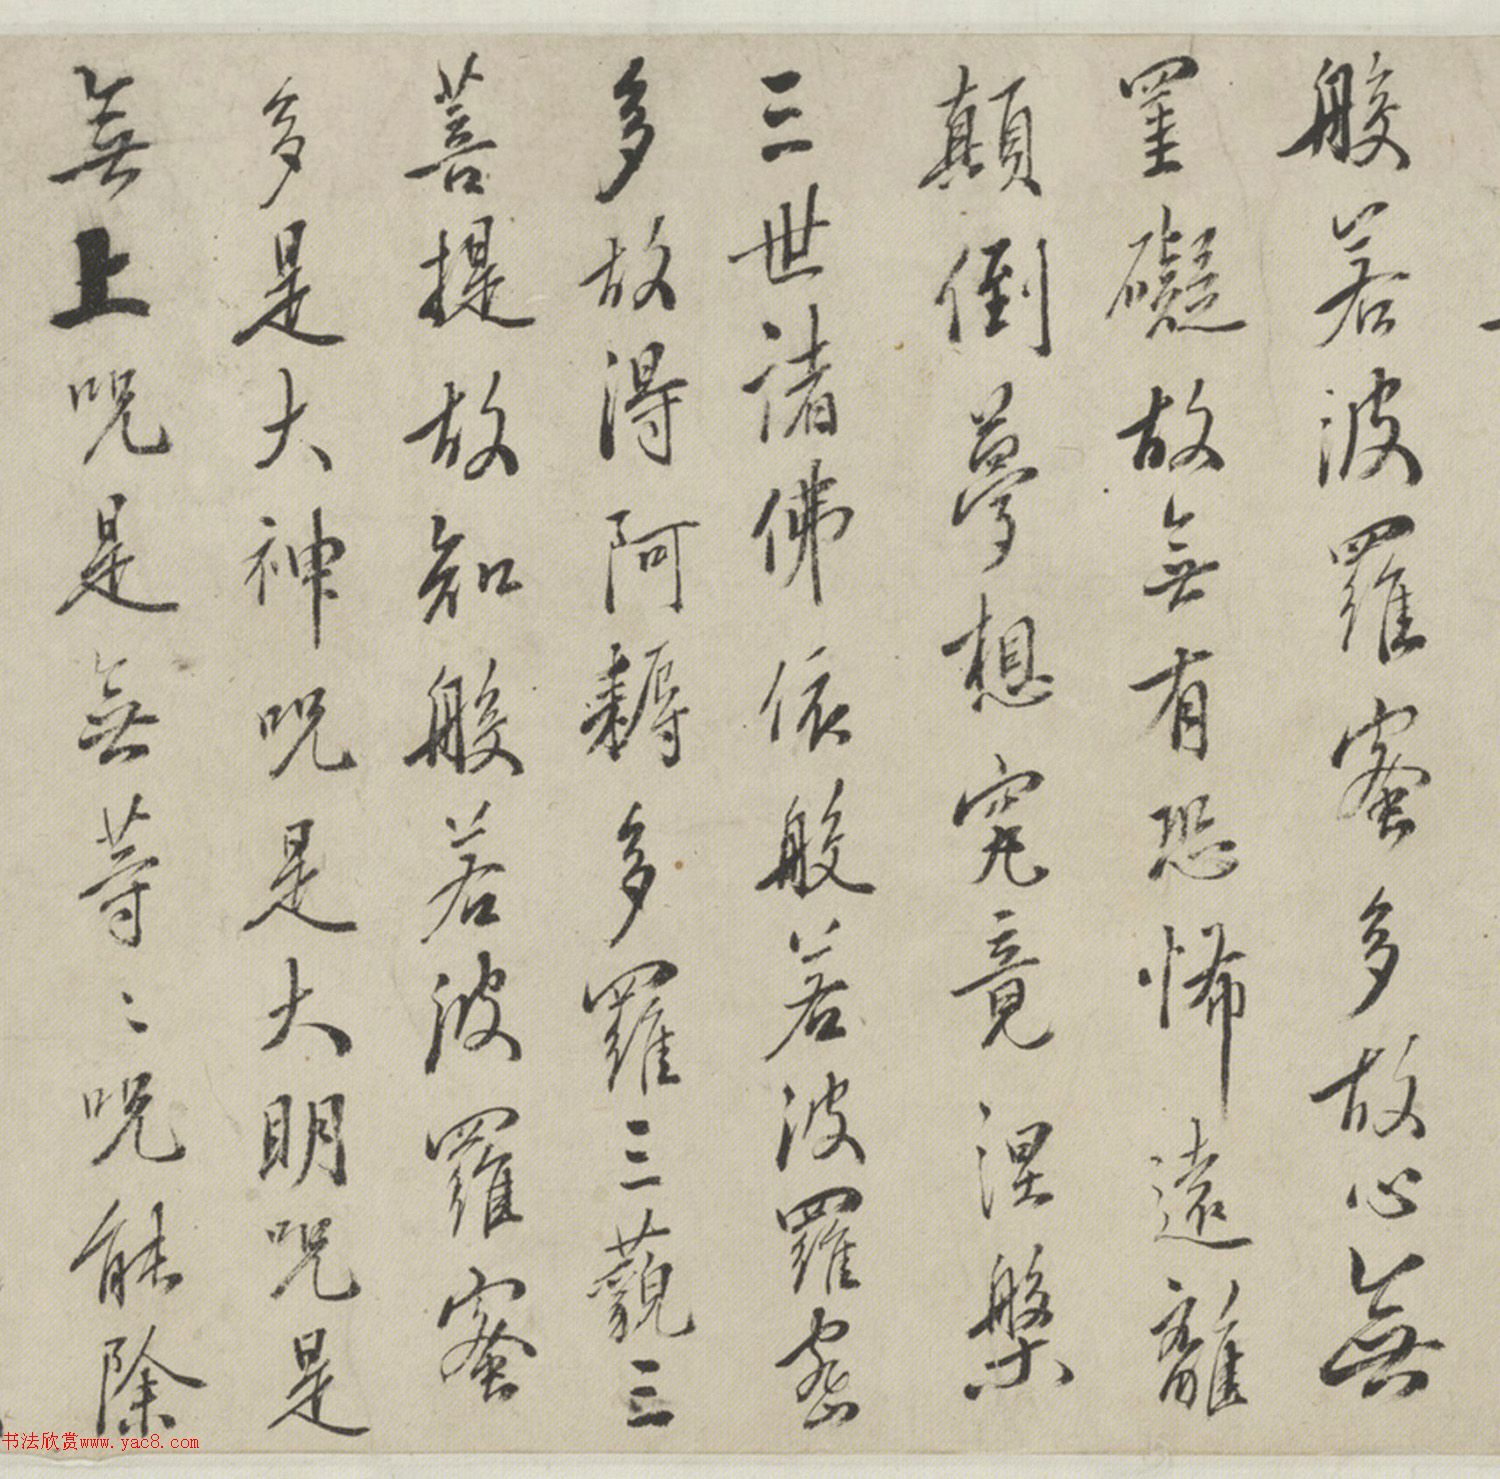 般若波羅蜜多故心無
罣礙故無有恐怖遠離
顛倒夢想究竟涅槃
三世諸佛依般若波羅密
多故得阿耨多羅三藐三
菩提故知般若波羅蜜
多是大神呪是大明呪是
無上呪是無等〻呪能除
书法欣赏www.yac8.com